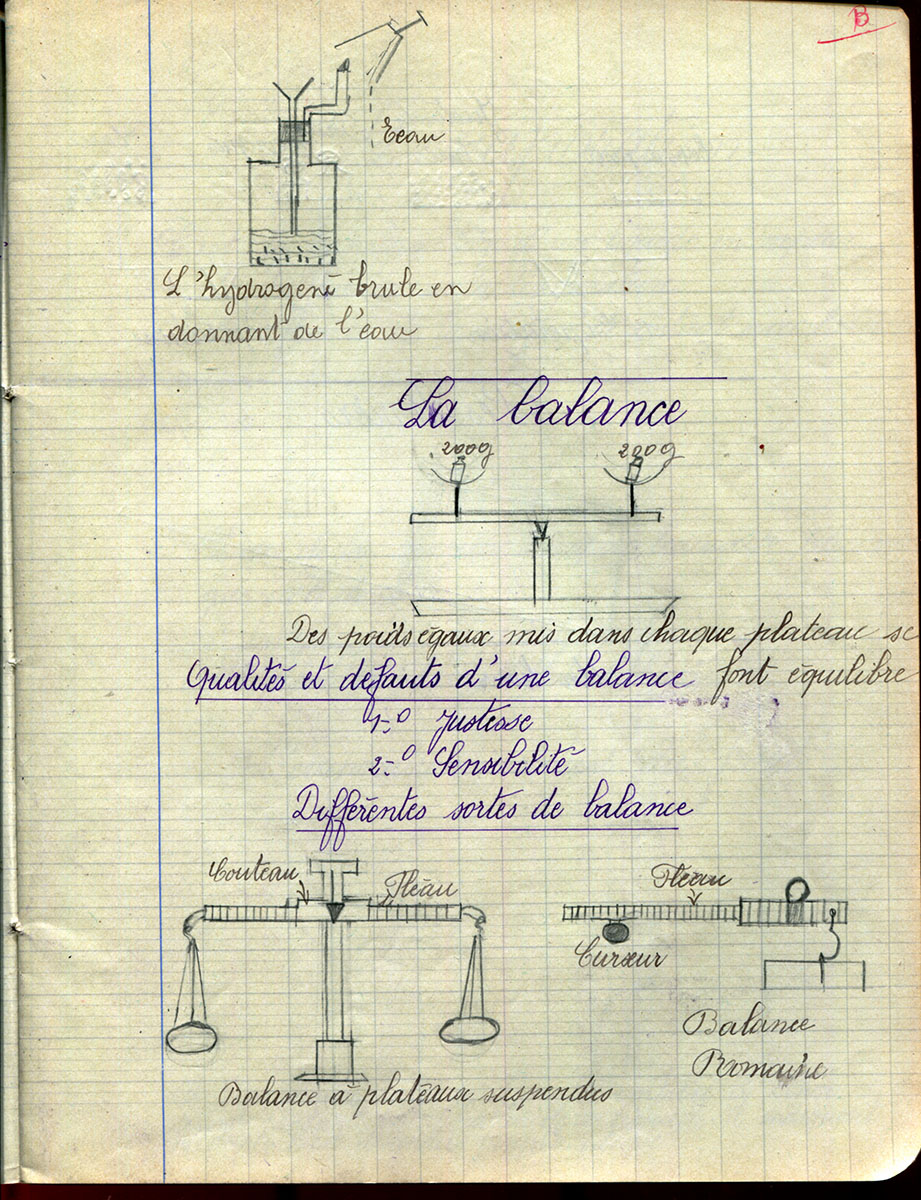 B
Eeau
L'hydrogene brule en
donnant de l'eau
La balance
200g 200g
Des poids egaux mis dans chaque plateau se
font équilibre
Qualités et defauts d'une balance
1-º Justesse
2-º Sensibilité
Différentes sortes de balance
Couteau Fléau
Fléau
Curseur
Balance
Romaine
Balance à plateaux suspendus